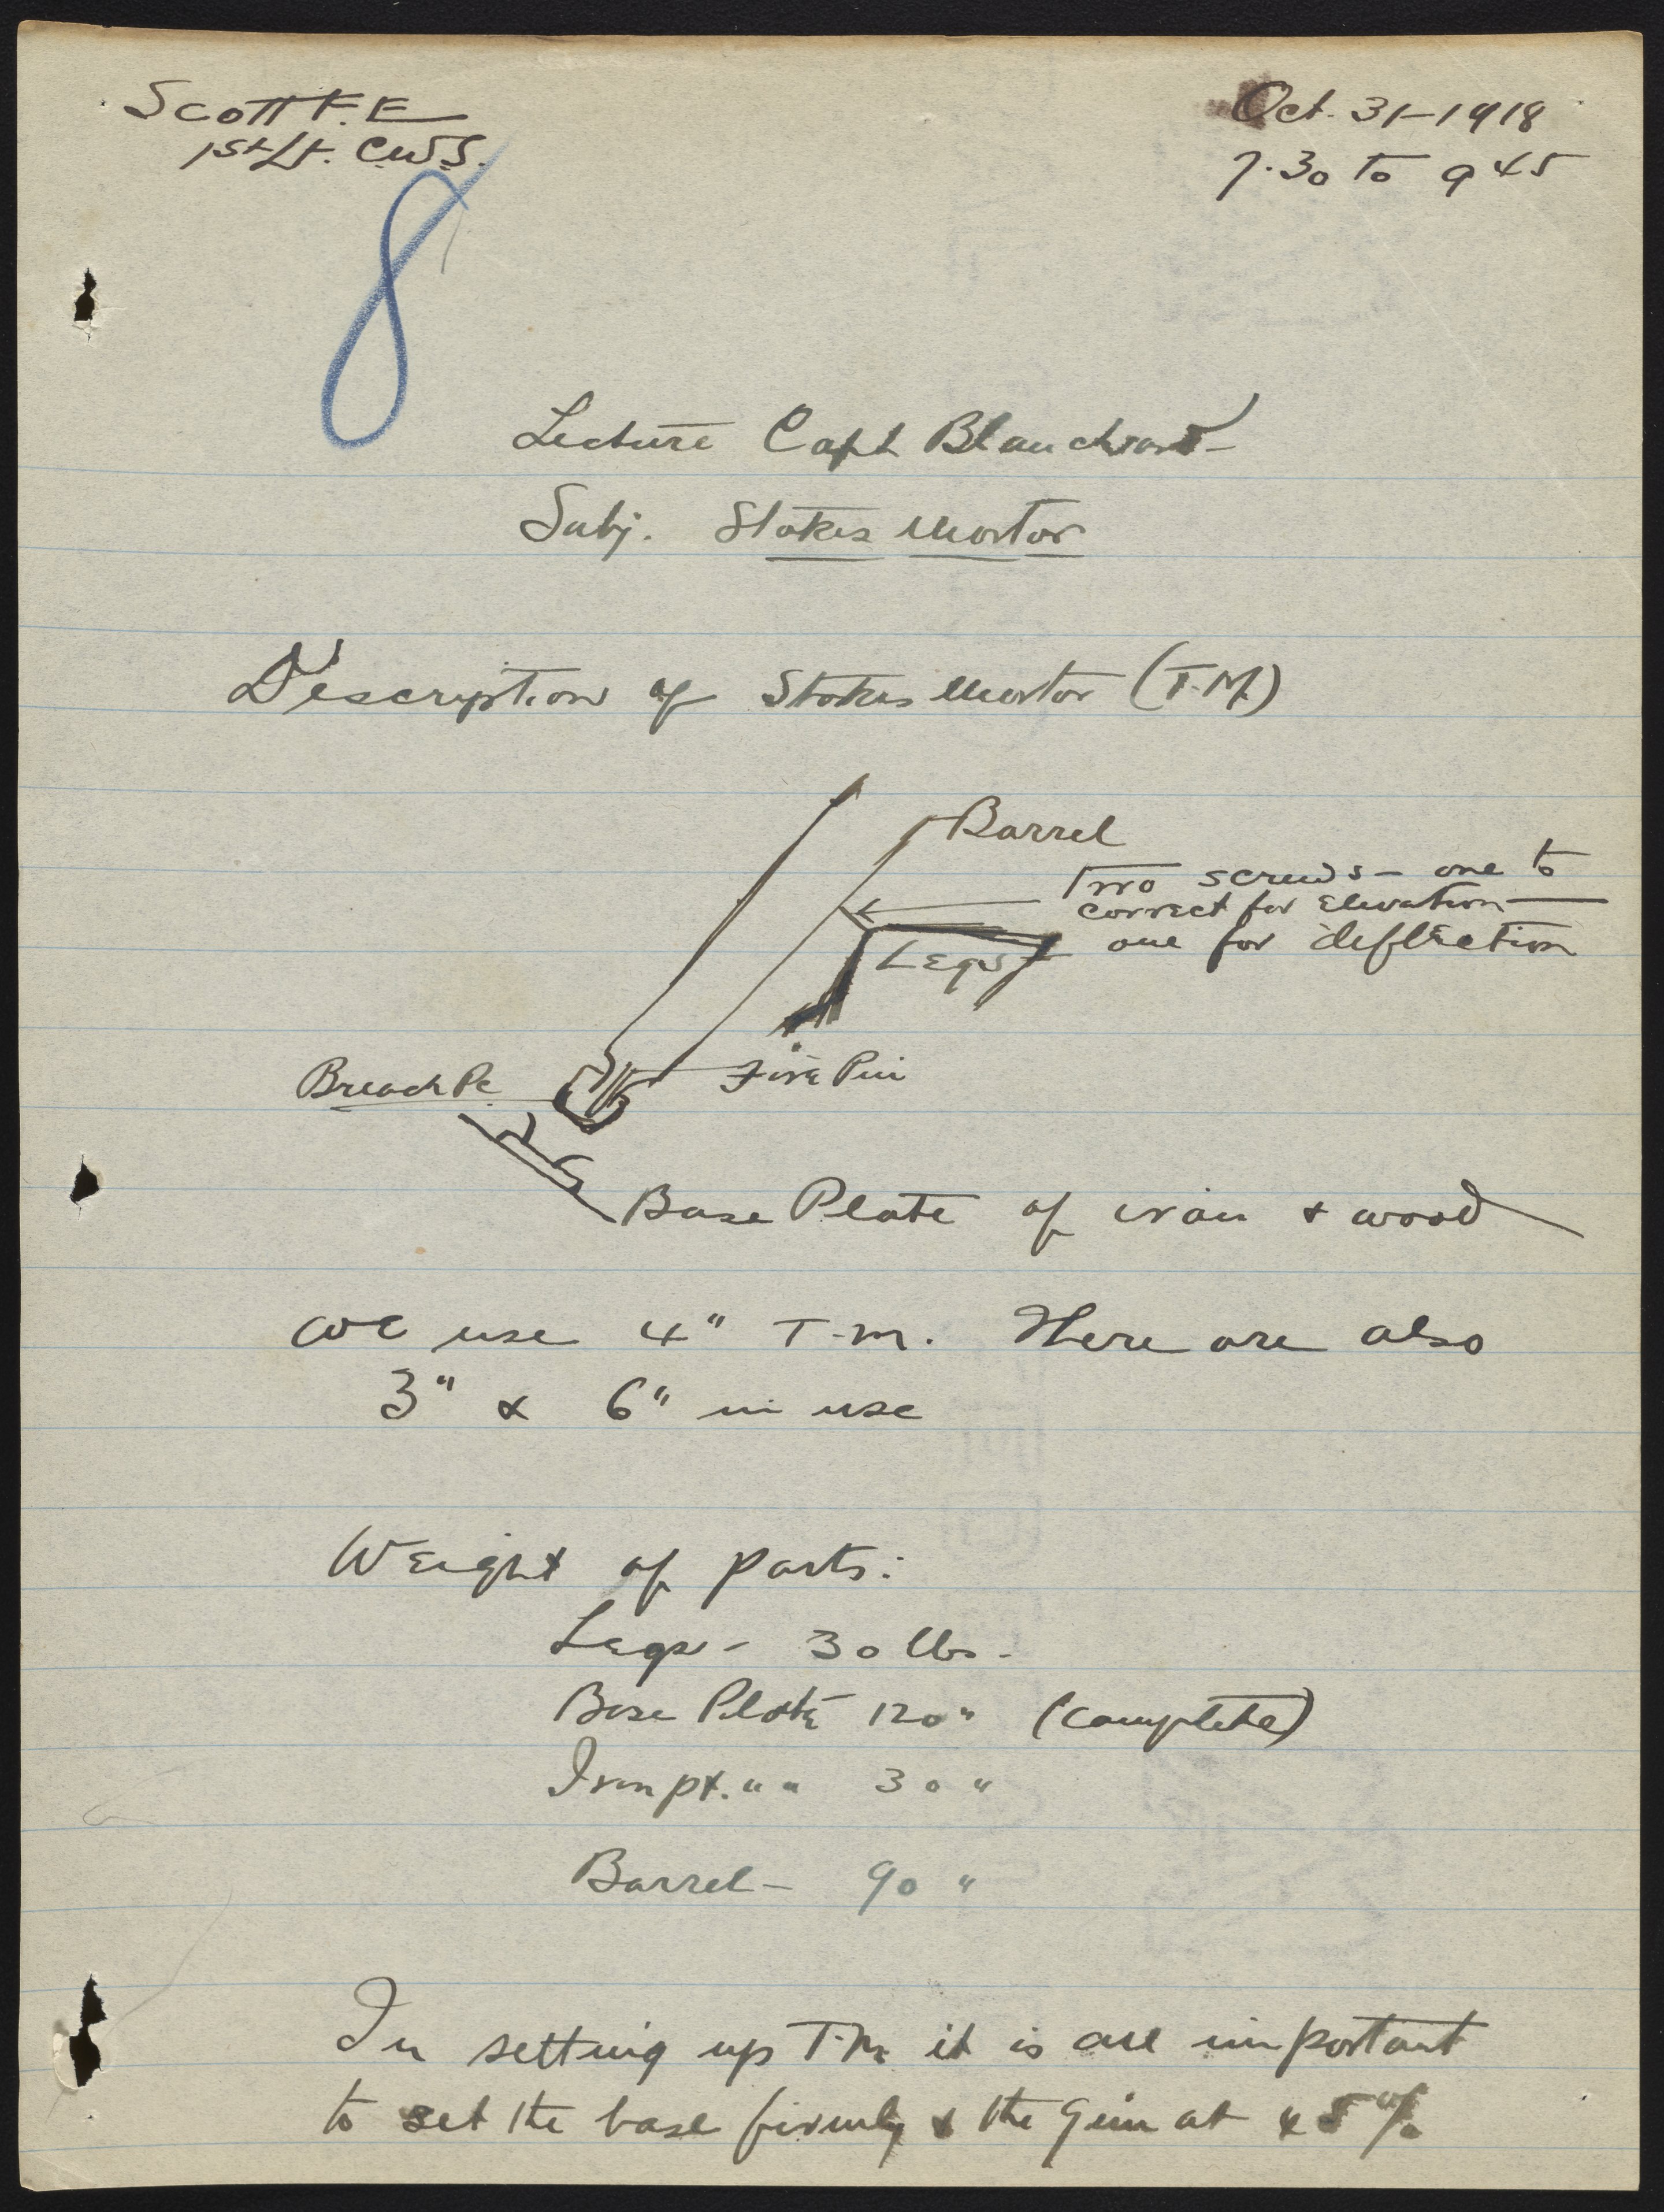 Scott F. E
1st Lt. C.W.S.
Oct. 31-1918
7.30 to 9 45
8
Lecture Capt Blanchard
Subj. Stokes Mortar
Description of Stokes Mortar (T.M.)
Barrel
Two screws - one to
correct for Elevation
one for deflection
Legs
Breach Pc.
Fire Pin
Base Plate of iron & wood
We use 4" T.M. There are also
3" & 6" in use
Weight of parts:
Legs - 30 lbs.
Base Plate 120 " (complete)
Iron pt. " " 30 "
Barrel - 90 "
In setting up T.M. it is all important
to set the base firmly & the Gun at 45